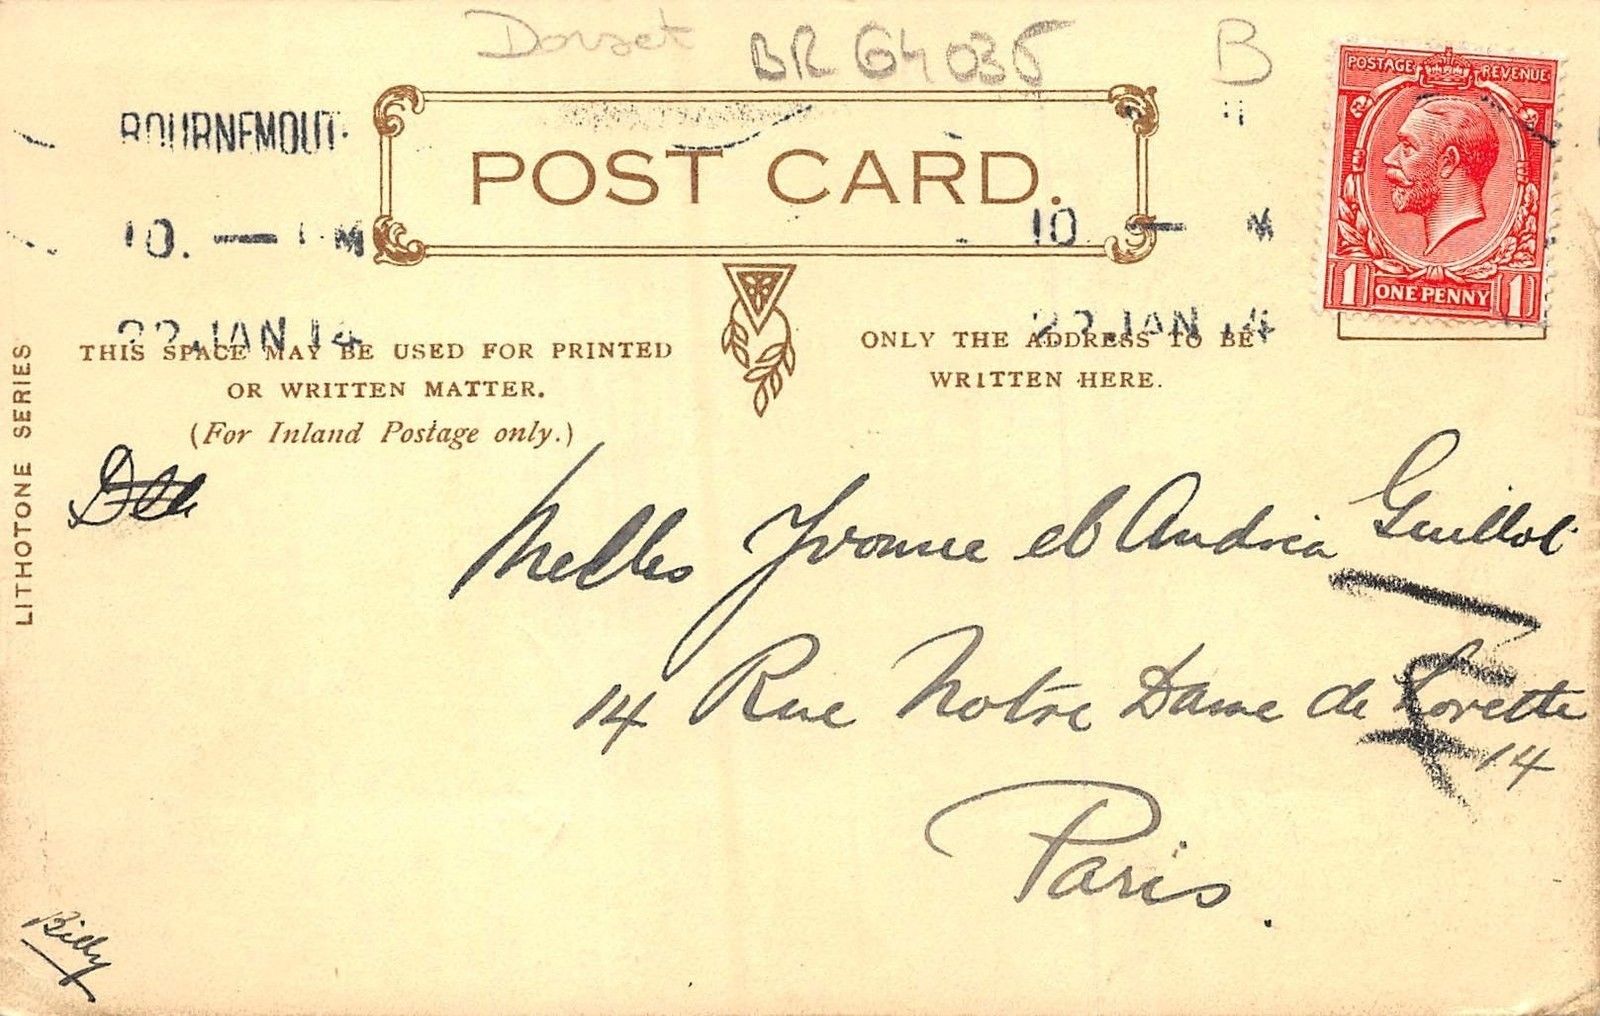 Dorset BR 64035 B
POSTAGE REVENUE
BOURNEMOUT
POST CARD.
10. — M
10 — M
22 JAN 14
22 JAN 14
1 ONE PENNY 1
THIS SPACE MAY BE USED FOR PRINTED
OR WRITTEN MATTER.
(For Inland Postage only.)
ONLY THE ADDRESS TO BE
WRITTEN HERE.
LITHOTONE SERIES
Melles Yvonne et Andréa Guillot
14 Rue Notre Dame de Lorette
14
Paris.
Billy